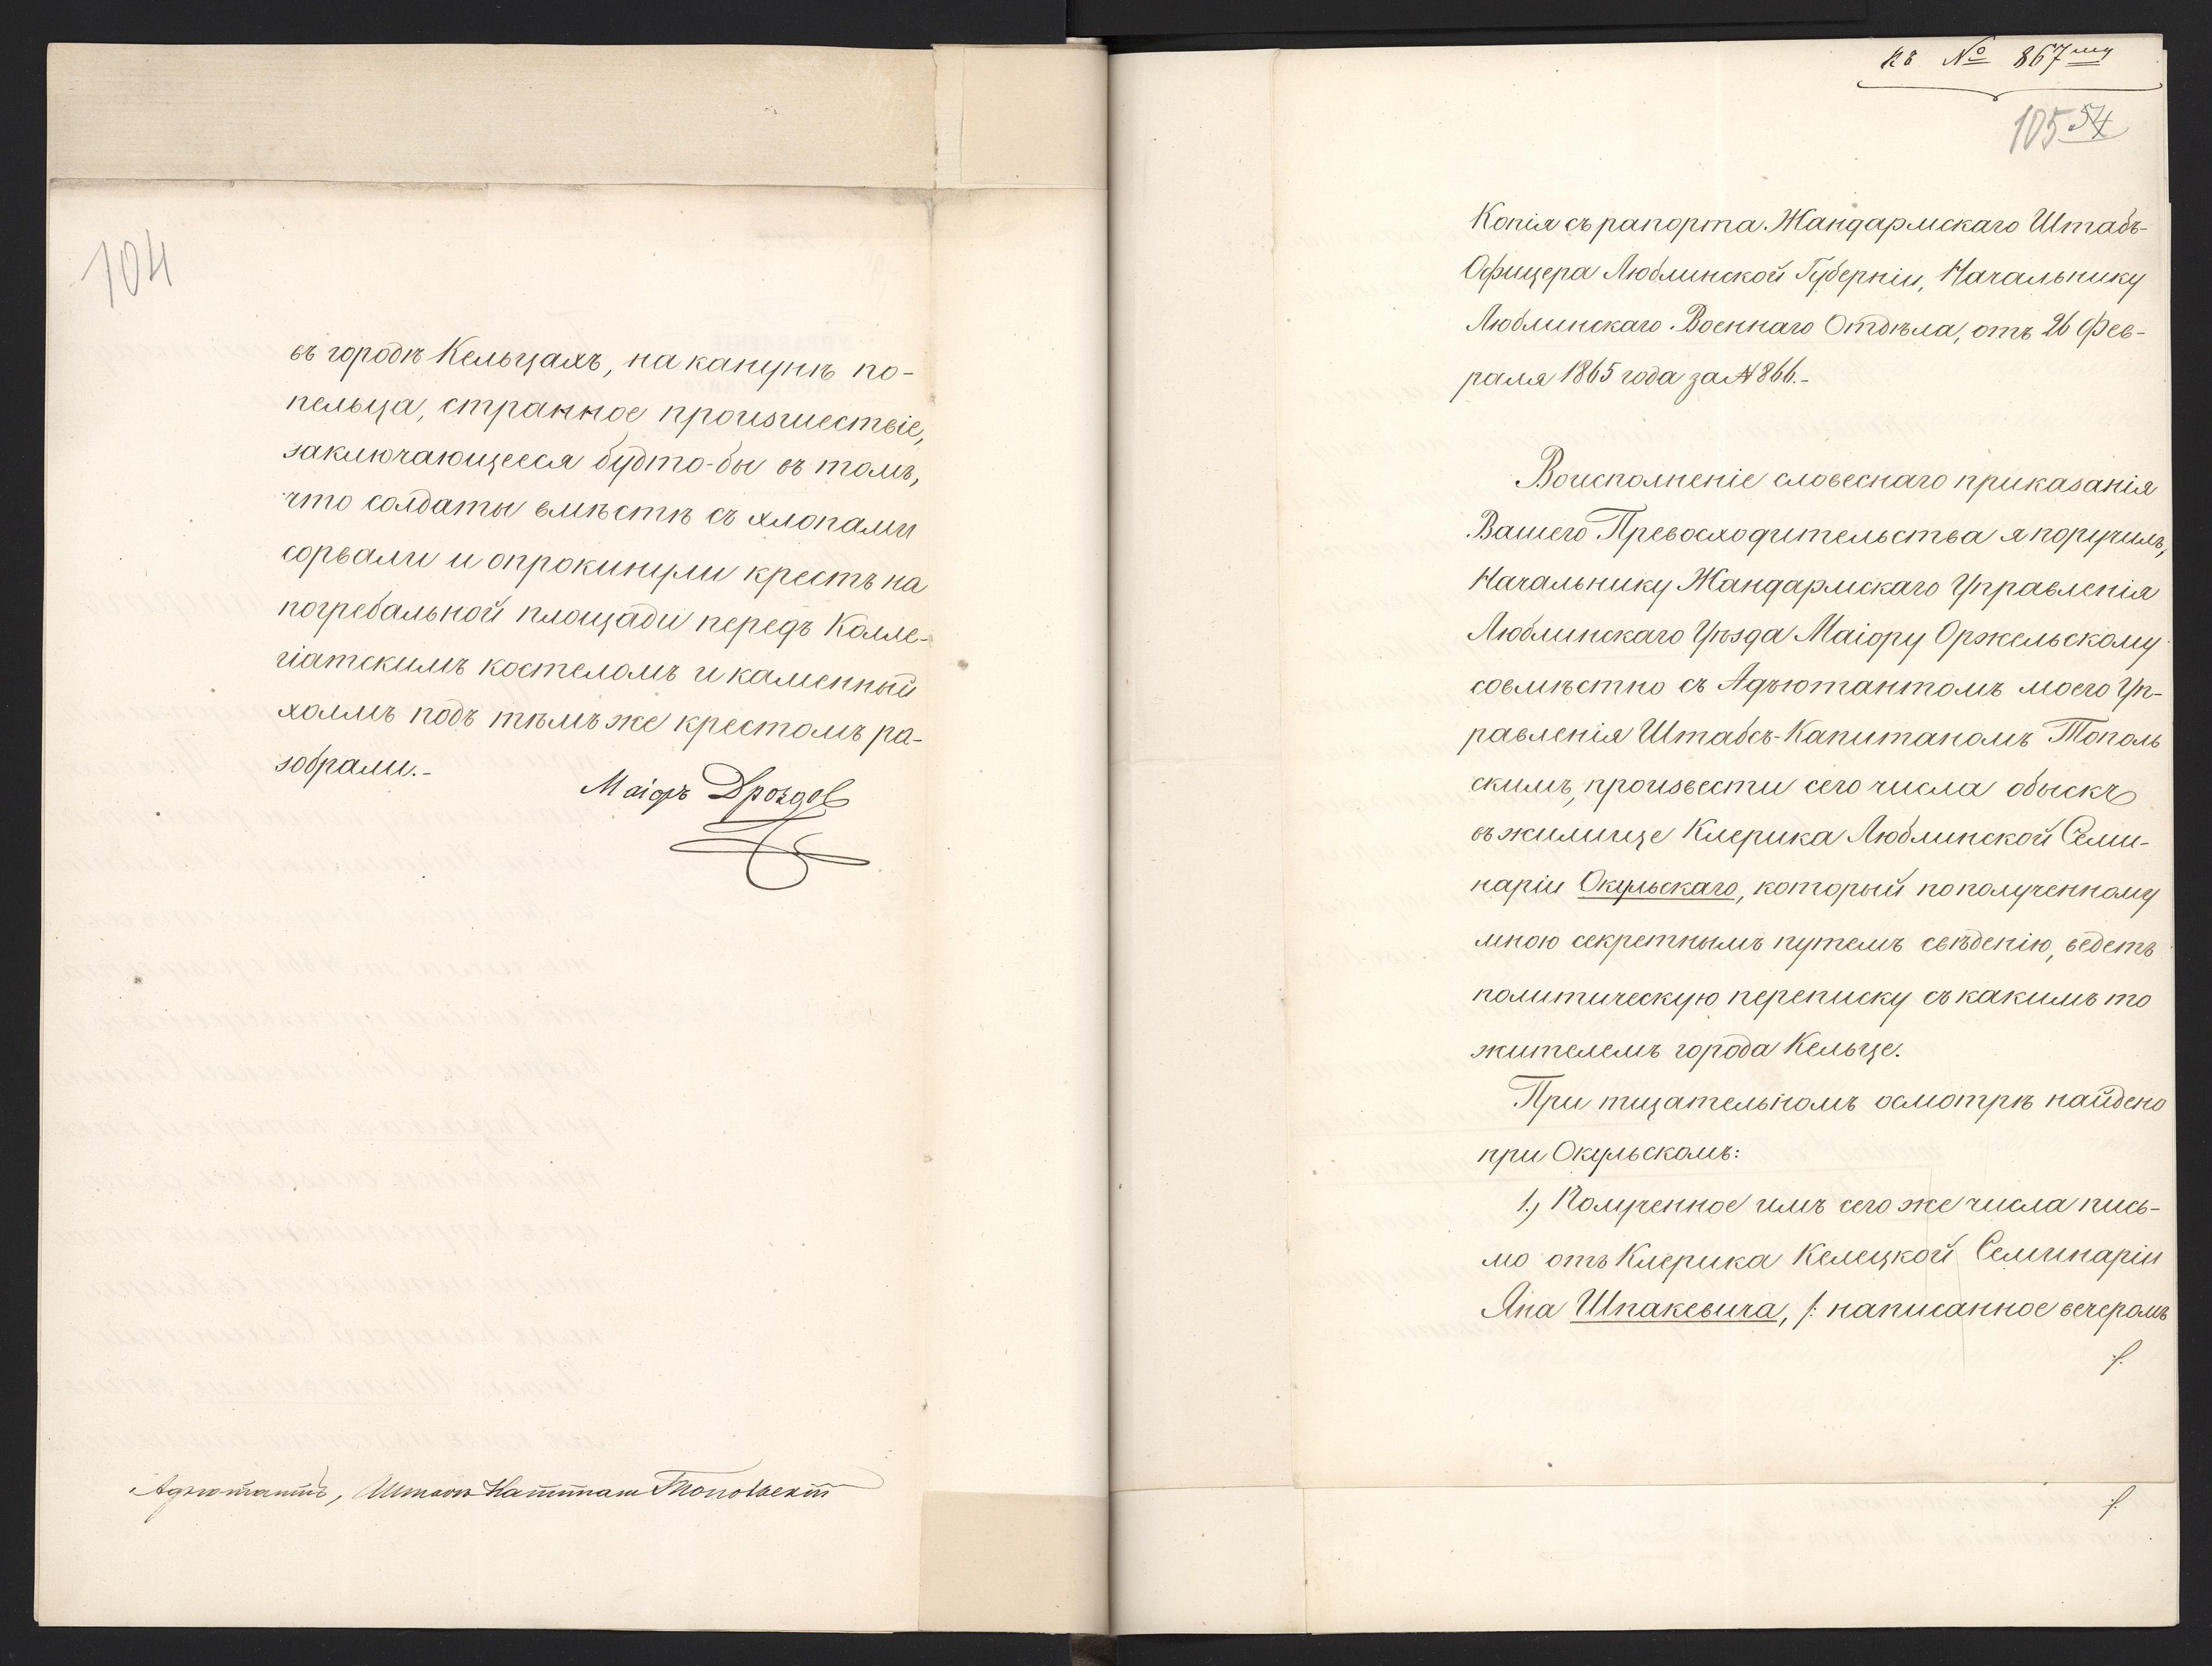 104
въ городѣ Кельцахъ, на канунѣ по-
пельца, странное произшествіе,
заключающееся будто-бы въ томъ,
что солдаты вмѣстѣ съ хлопами
сорвали и опрокинули крестъ на
погребальной площади передъ Колле-
гіатскимъ костеломъ и каменный
холмъ подъ тѣмъ же крестомъ ра-
зобрали.-
Маіоръ Дроздов
Адъютантъ, Штабсъ Капитанъ Топольскій
къ № 867му
105 54
Копія съ рапорта Жандармскаго Штабъ-
Офицера Люблинской Губерніи, Начальнику
Люблинскаго Военнаго Отдѣла, отъ 26 Фев-
раля 1865 года за № 866.-
Воисполненіе словеснаго приказанія
Вашего Превосходительства я поручилъ,
Начальнику Жандармскаго Управленія
Люблинскаго Уѣзда Маіору Оржельскому
совмѣстно съ Адъютантомъ моего Уп-
равленія Штабсъ-Капитаномъ Тополь
скимъ, произвести сего числа обыскъ
въ жилище Клерика Люблинской Семи-
наріи Окульскаго, который по полученному
мною секретнымъ путемъ свѣденію, ведетъ
политическую переписку съ какимъ то
жителемъ города Кельце.
При тщательномъ осмотрѣ найдено
при Окульскомъ:
1., Полученное имъ сего же числа пись-
мо отъ Клерика Келецкой Семинаріи
Яна Шпакевича, /: написанное вечеромъ
./.
./.